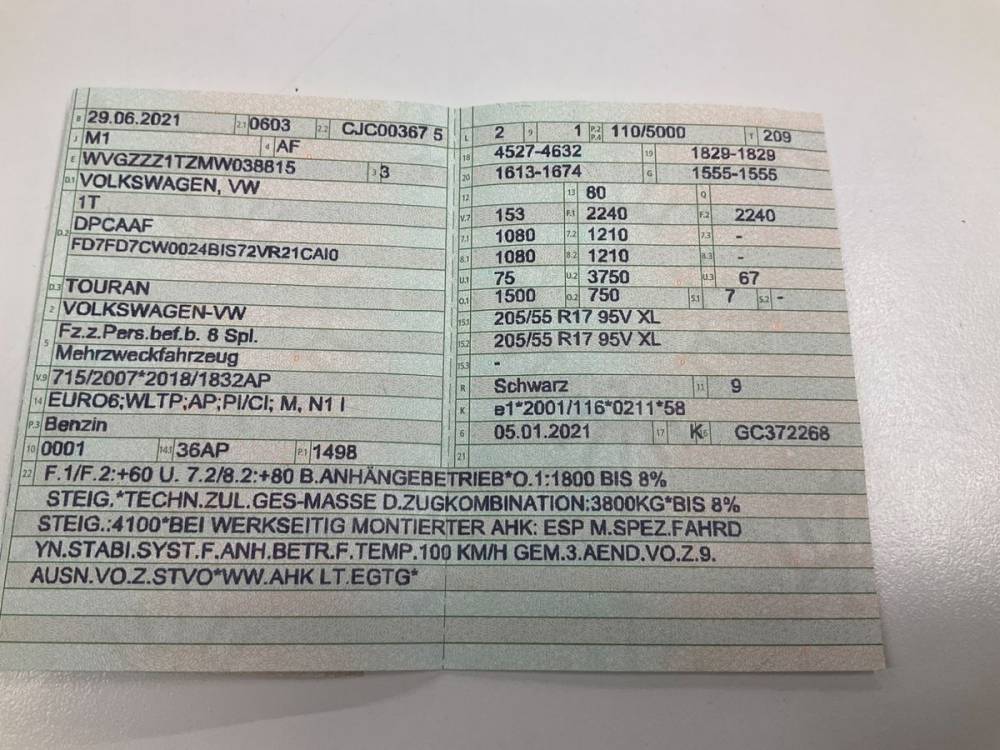 B 29.06.2021 2.1 0603 2.2 CJC00367 5
J M1 4 AF
E WVGZZZ1TZMW038815 3 3
D.1 VOLKSWAGEN, VW
1T
D.2 DPCAAF
FD7FD7CW0024BIS72VR21CAI0
D.3 TOURAN
2 VOLKSWAGEN-VW
5 Fz.z.Pers.bef.b. 8 Spl.
Mehrzweckfahrzeug
V.9 715/2007*2018/1832AP
14 EURO6;WLTP;AP;PI/CI; M, N1 I
P.3 Benzin
10 0001 14.1 36AP P.1 1498
L 2 9 1 P.2 P.4 110/5000 T 209
18 4527-4632 19 1829-1829
20 1613-1674 G 1555-1555
12 13 80 Q
V.7 153 F.1 2240 F.2 2240
7.1 1080 7.2 1210 7.3 -
8.1 1080 8.2 1210 8.3 -
U.1 75 U.2 3750 U.3 67
O.1 1500 O.2 750 S.1 7 S.2 -
15.1 205/55 R17 95V XL
15.2 205/55 R17 95V XL
15.3 -
R Schwarz 11 9
K e1*2001/116*0211*58
6 05.01.2021 17 K 16 GC372268
21
22 F.1/F.2:+60 U. 7.2/8.2:+80 B.ANHÄNGEBETRIEB*O.1:1800 BIS 8%
STEIG.*TECHN.ZUL.GES-MASSE D.ZUGKOMBINATION:3800KG*BIS 8%
STEIG.:4100*BEI WERKSEITIG MONTIERTER AHK: ESP M.SPEZ.FAHRD
YN.STABI.SYST.F.ANH.BETR.F.TEMP.100 KM/H GEM.3.AEND.VO.Z.9.
AUSN.VO.Z.STVO*WW.AHK LT.EGTG*